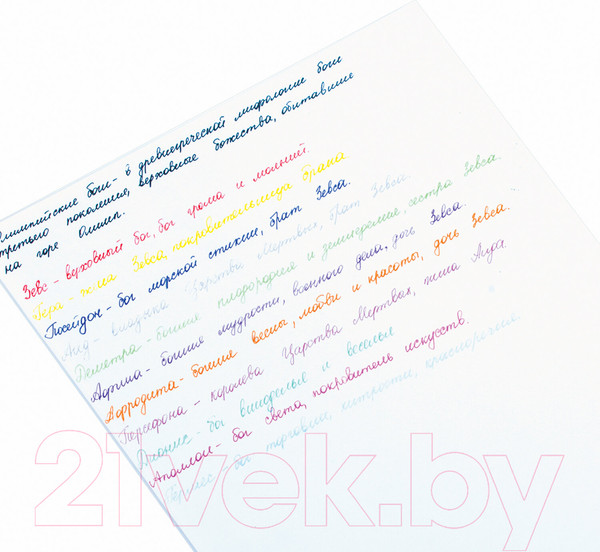 Олимпийские боги - в древнегреческой мифологии боги
третьего поколения, верховные божества, обитавшие
на горе Олимп.
Зевс - верховный бог, бог грома и молний.
Гера - жена Зевса, покровительница брака
Посейдон - бог морской стихии, брат Зевса.
Аид - владыка Царства Мертвых, брат Зевса.
Деметра - богиня плодородия и земледелия, сестра Зевса.
Афина - богиня мудрости, военного дела, дочь Зевса.
Афродита - богиня весны, любви и красоты, дочь Зевса.
Персефона - королева Царства Мертвых, жена Аида.
Дионис - бог виноделия и веселья
Аполлон - бог света, покровитель искусств.
Гермес - бог торговли, хитрости, красноречия
21vek.by